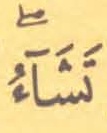 تَشَآءُۖ